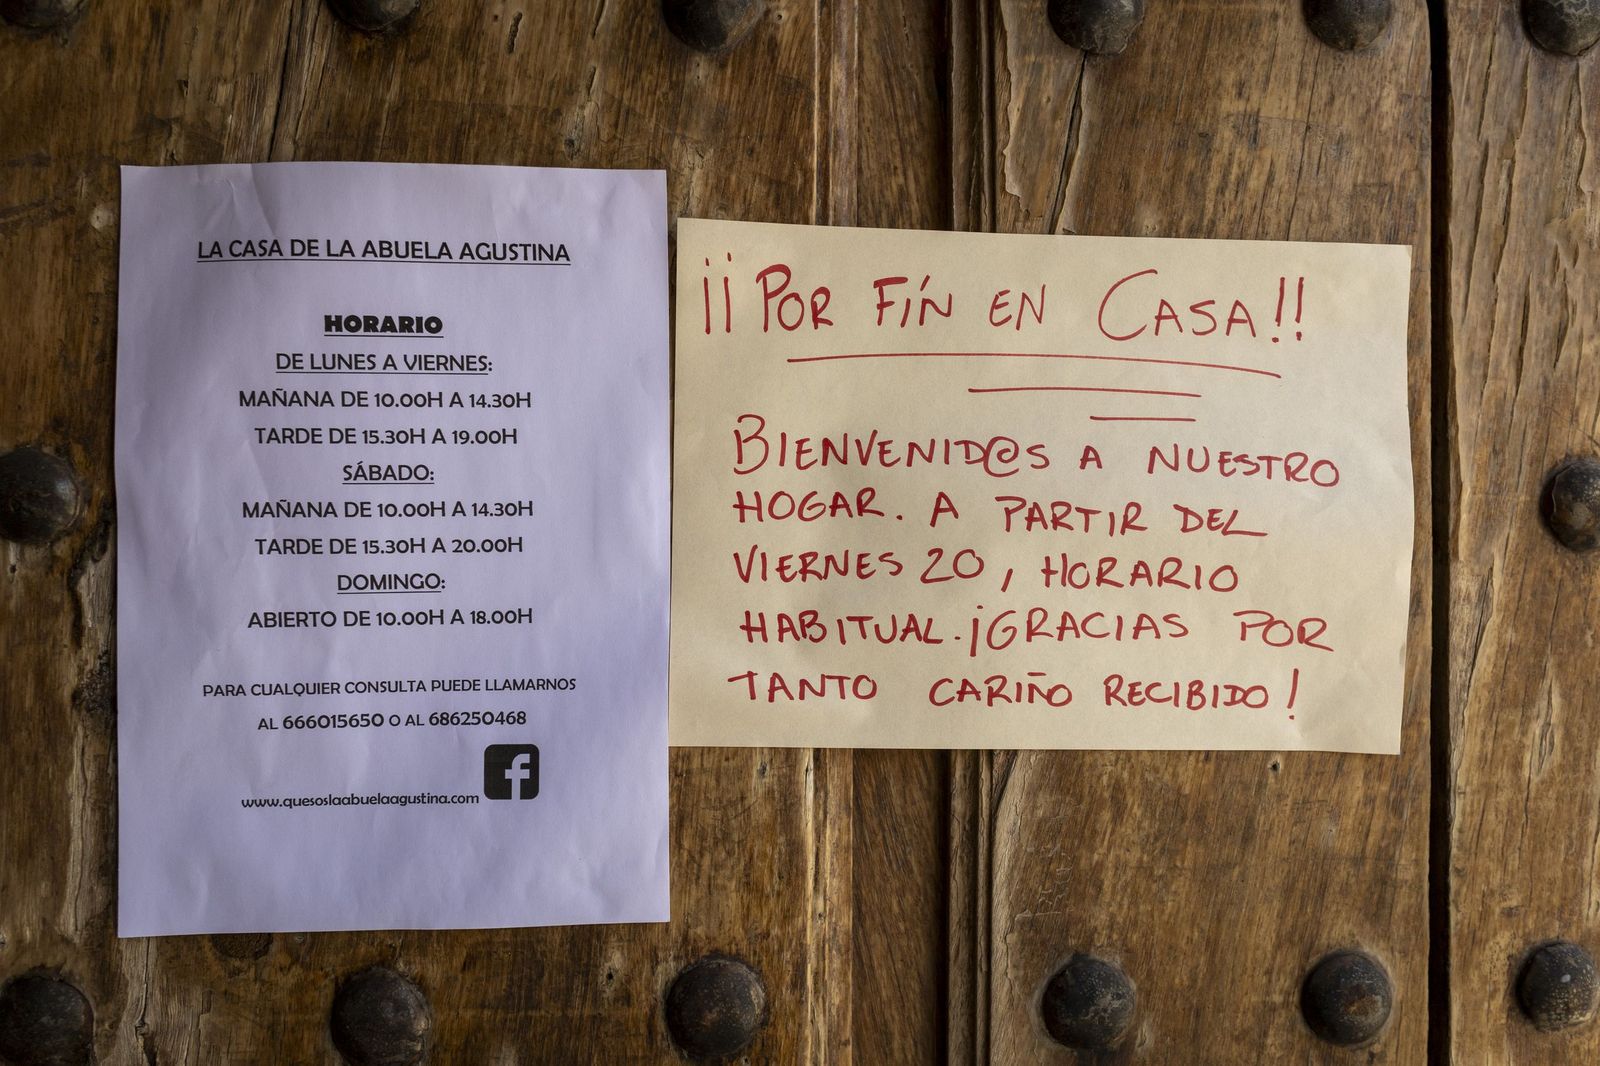 LA CASA DE LA ABUELA AGUSTINA
HORARIO
DE LUNES A VIERNES:
MAÑANA DE 10.00H A 14.30H
TARDE DE 15.30H A 19.00H
SÁBADO:
MAÑANA DE 10.00H A 14.30H
TARDE DE 15.30H A 20.00H
DOMINGO:
ABIERTO DE 10.00H A 18.00H
PARA CUALQUIER CONSULTA PUEDE LLAMARNOS
AL 666015650 O AL 686250468
www.quesoslaabuelaagustina.com f
¡¡POR FÍN EN CASA!!
BIENVENID@S A NUESTRO
HOGAR. A PARTIR DEL
VIERNES 20, HORARIO
HABITUAL. ¡GRACIAS POR
TANTO CARIÑO RECIBIDO!